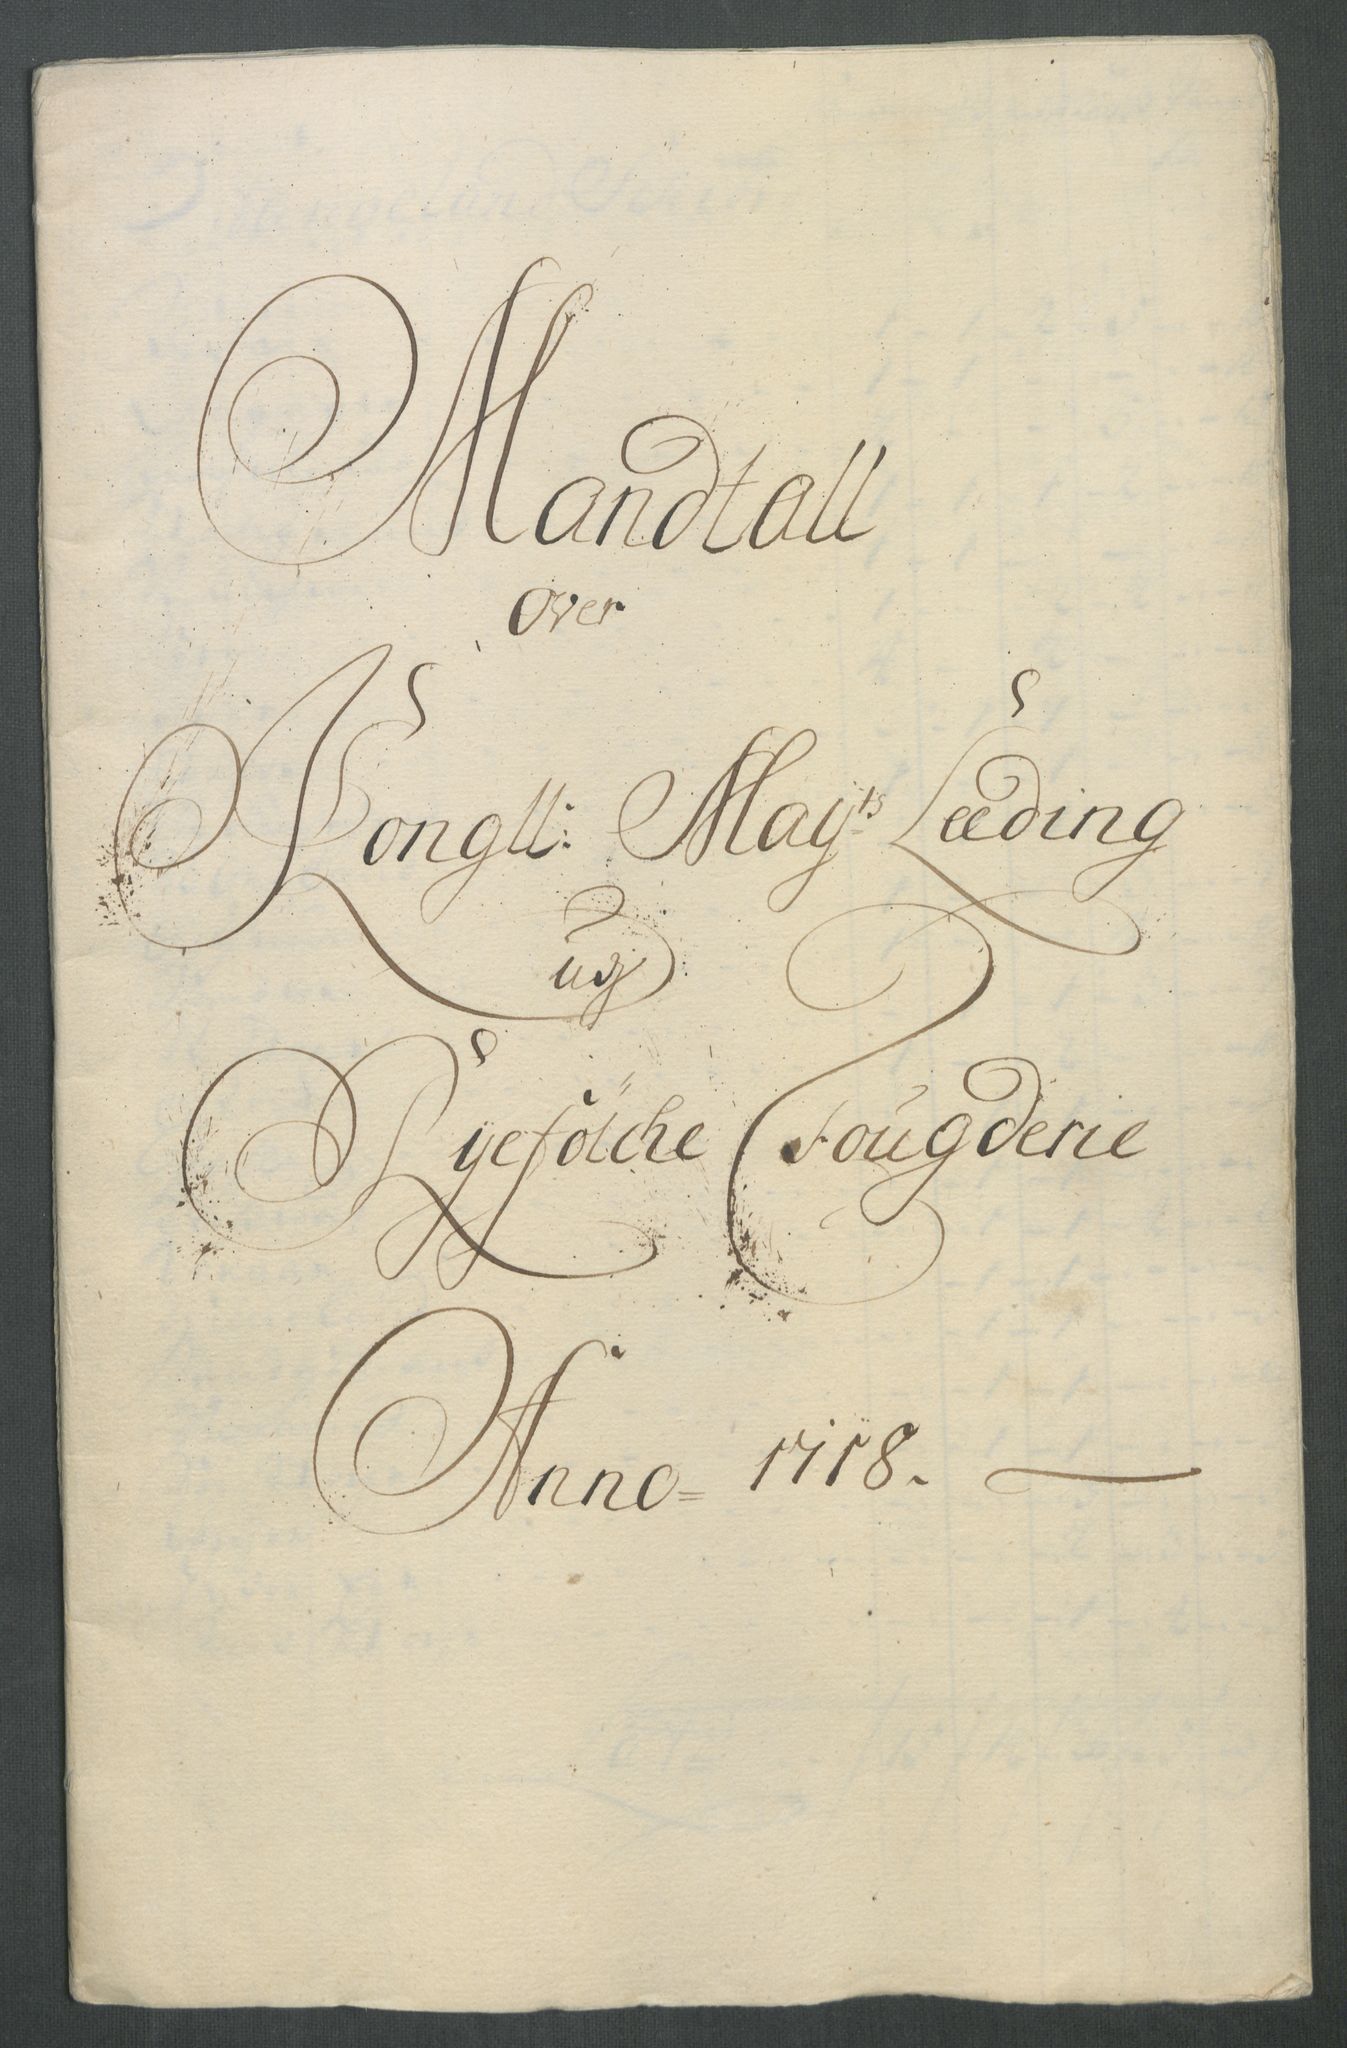 Mandtall
Over
Kongll: Mayts Leeding
udj
Ryefölche Fougderie
Anno= 1718.